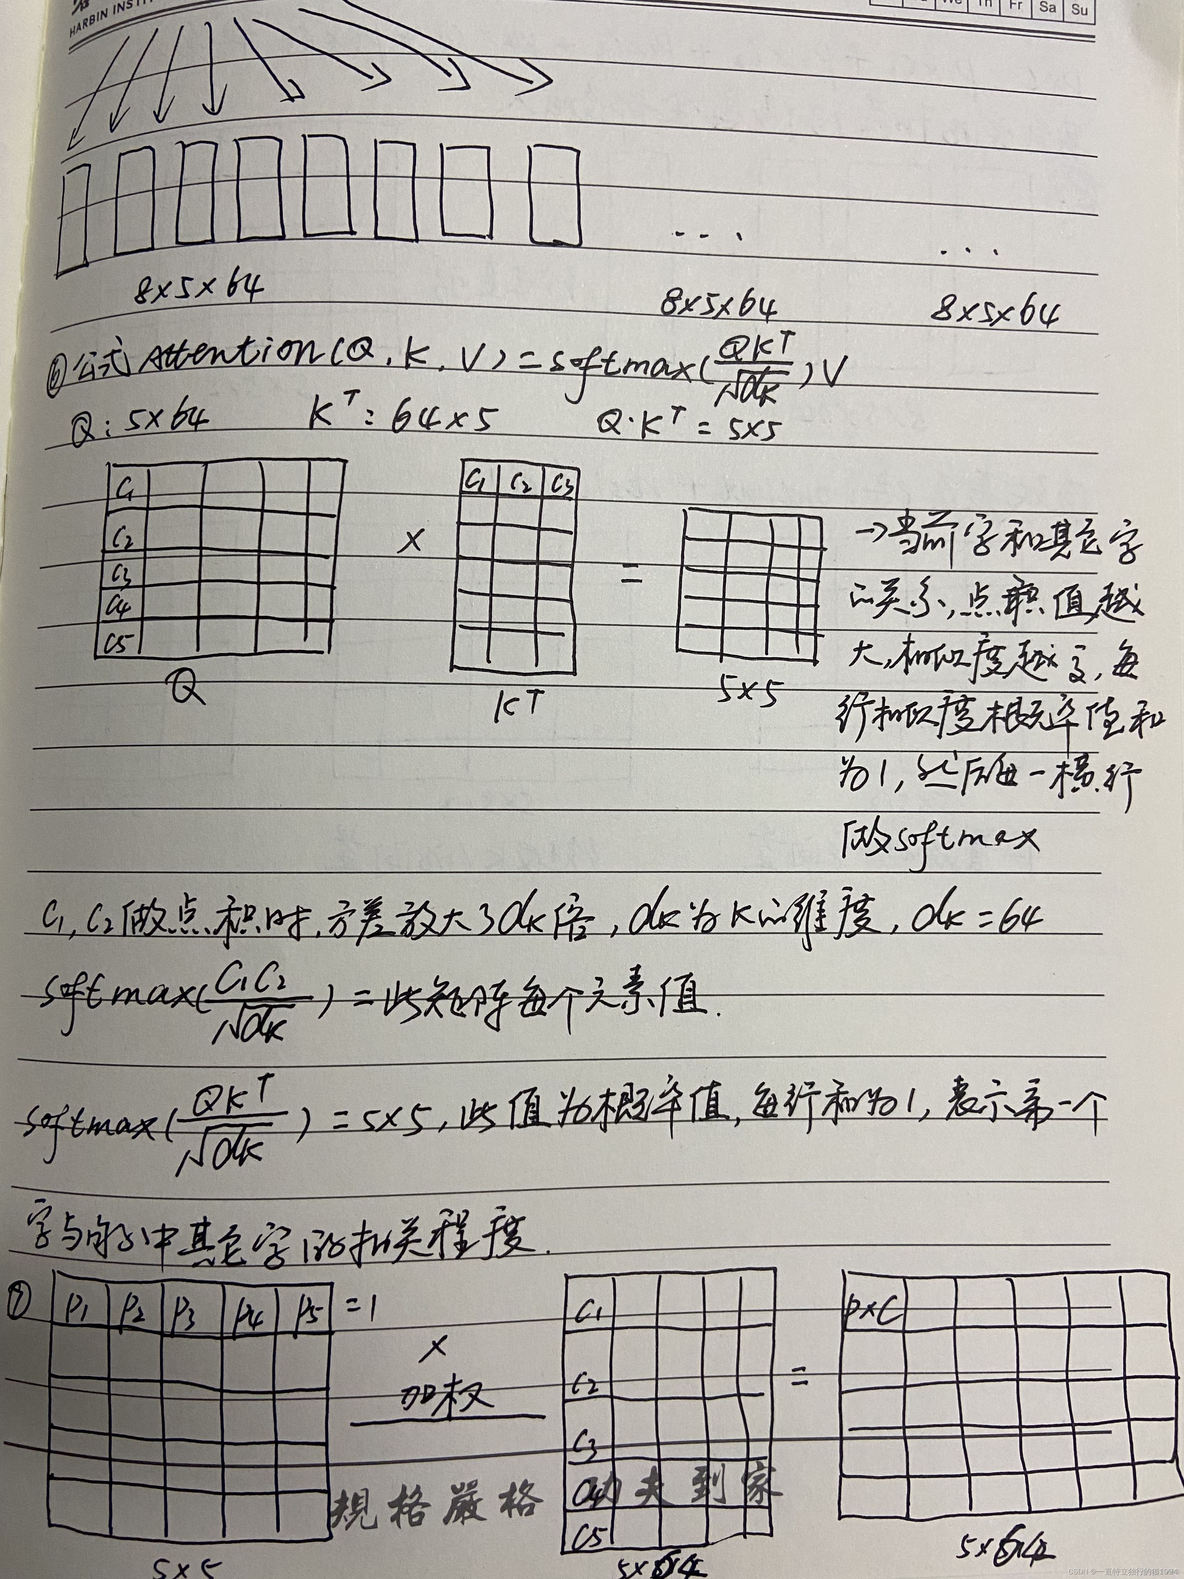 HARBIN INSTI
We Th Fr Sa Su
8×5×64 8×5×64 8×5×64
⑥公式 Attention(Q,K,V)=softmax(QK^T/√dk)V
Q:5×64 K^T:64×5 Q·K^T=5×5
C1
C2
C3
C4
C5
Q
×
C1 C2 C3
K^T
=
5×5
→当前字和其它字
的关系,点积值越
大,相似度越高,每
行相似度概率值和
为1,然后每一横行
做softmax
C1,C2做点积时,方差放大了dk倍,dk为K的维度,dk=64
softmax(C1C2/√dk)=此矩阵每个元素值.
softmax(QK^T/√dk)=5×5,此值为概率值,每行和为1,表示第一个
字与句子中其它字的相关程度.
⑦ P1 P2 P3 P4 P5 =1
5×5
×
加权
C1
C2
C3
C4
C5
5×64
=
P×C
5×64
規格嚴格 功夫到家